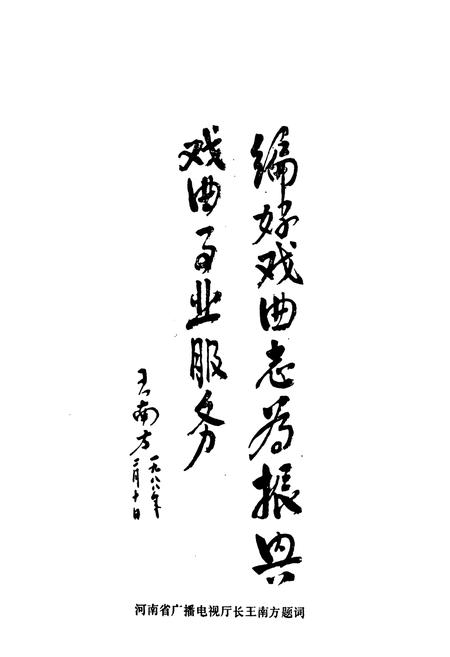 编好戏曲志为振兴
戏曲事业服务
王南方
一九八八年
二月十日
河南省广播电视厅长王南方题词